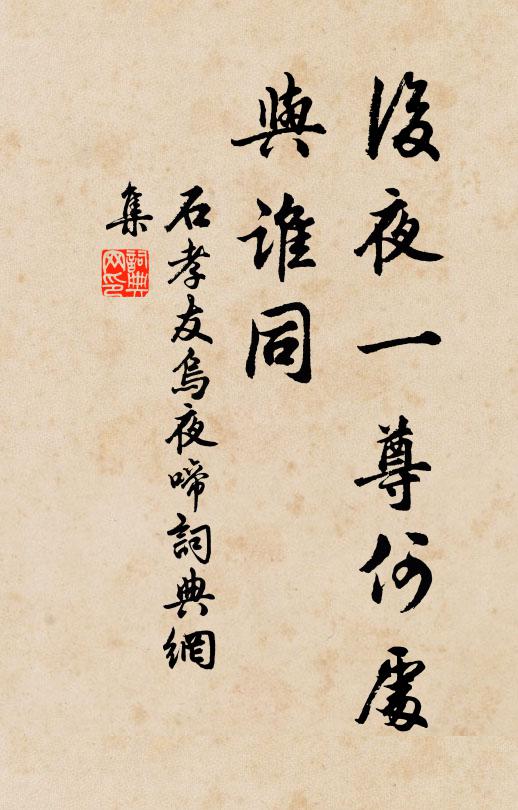 後夜一尊何處
與誰同
石孝友烏夜啼詞典網
集
詞典
网印